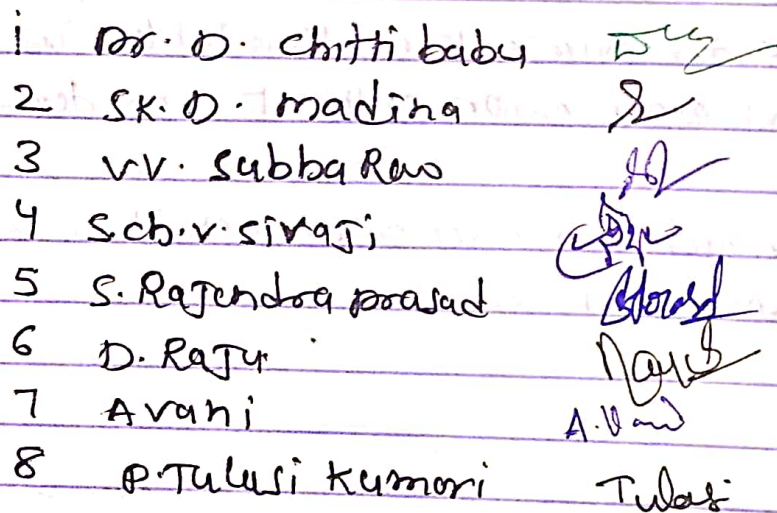 1 Dr. D. Chitti babu
2 SK. D. madina
3 VV. Subba Rao
4 S.ch.v. sivaji
5 S. Rajendra prasad
6 D. Raju
7 Avani A.Vani
8 P. Tulusi Kumari Tulasi